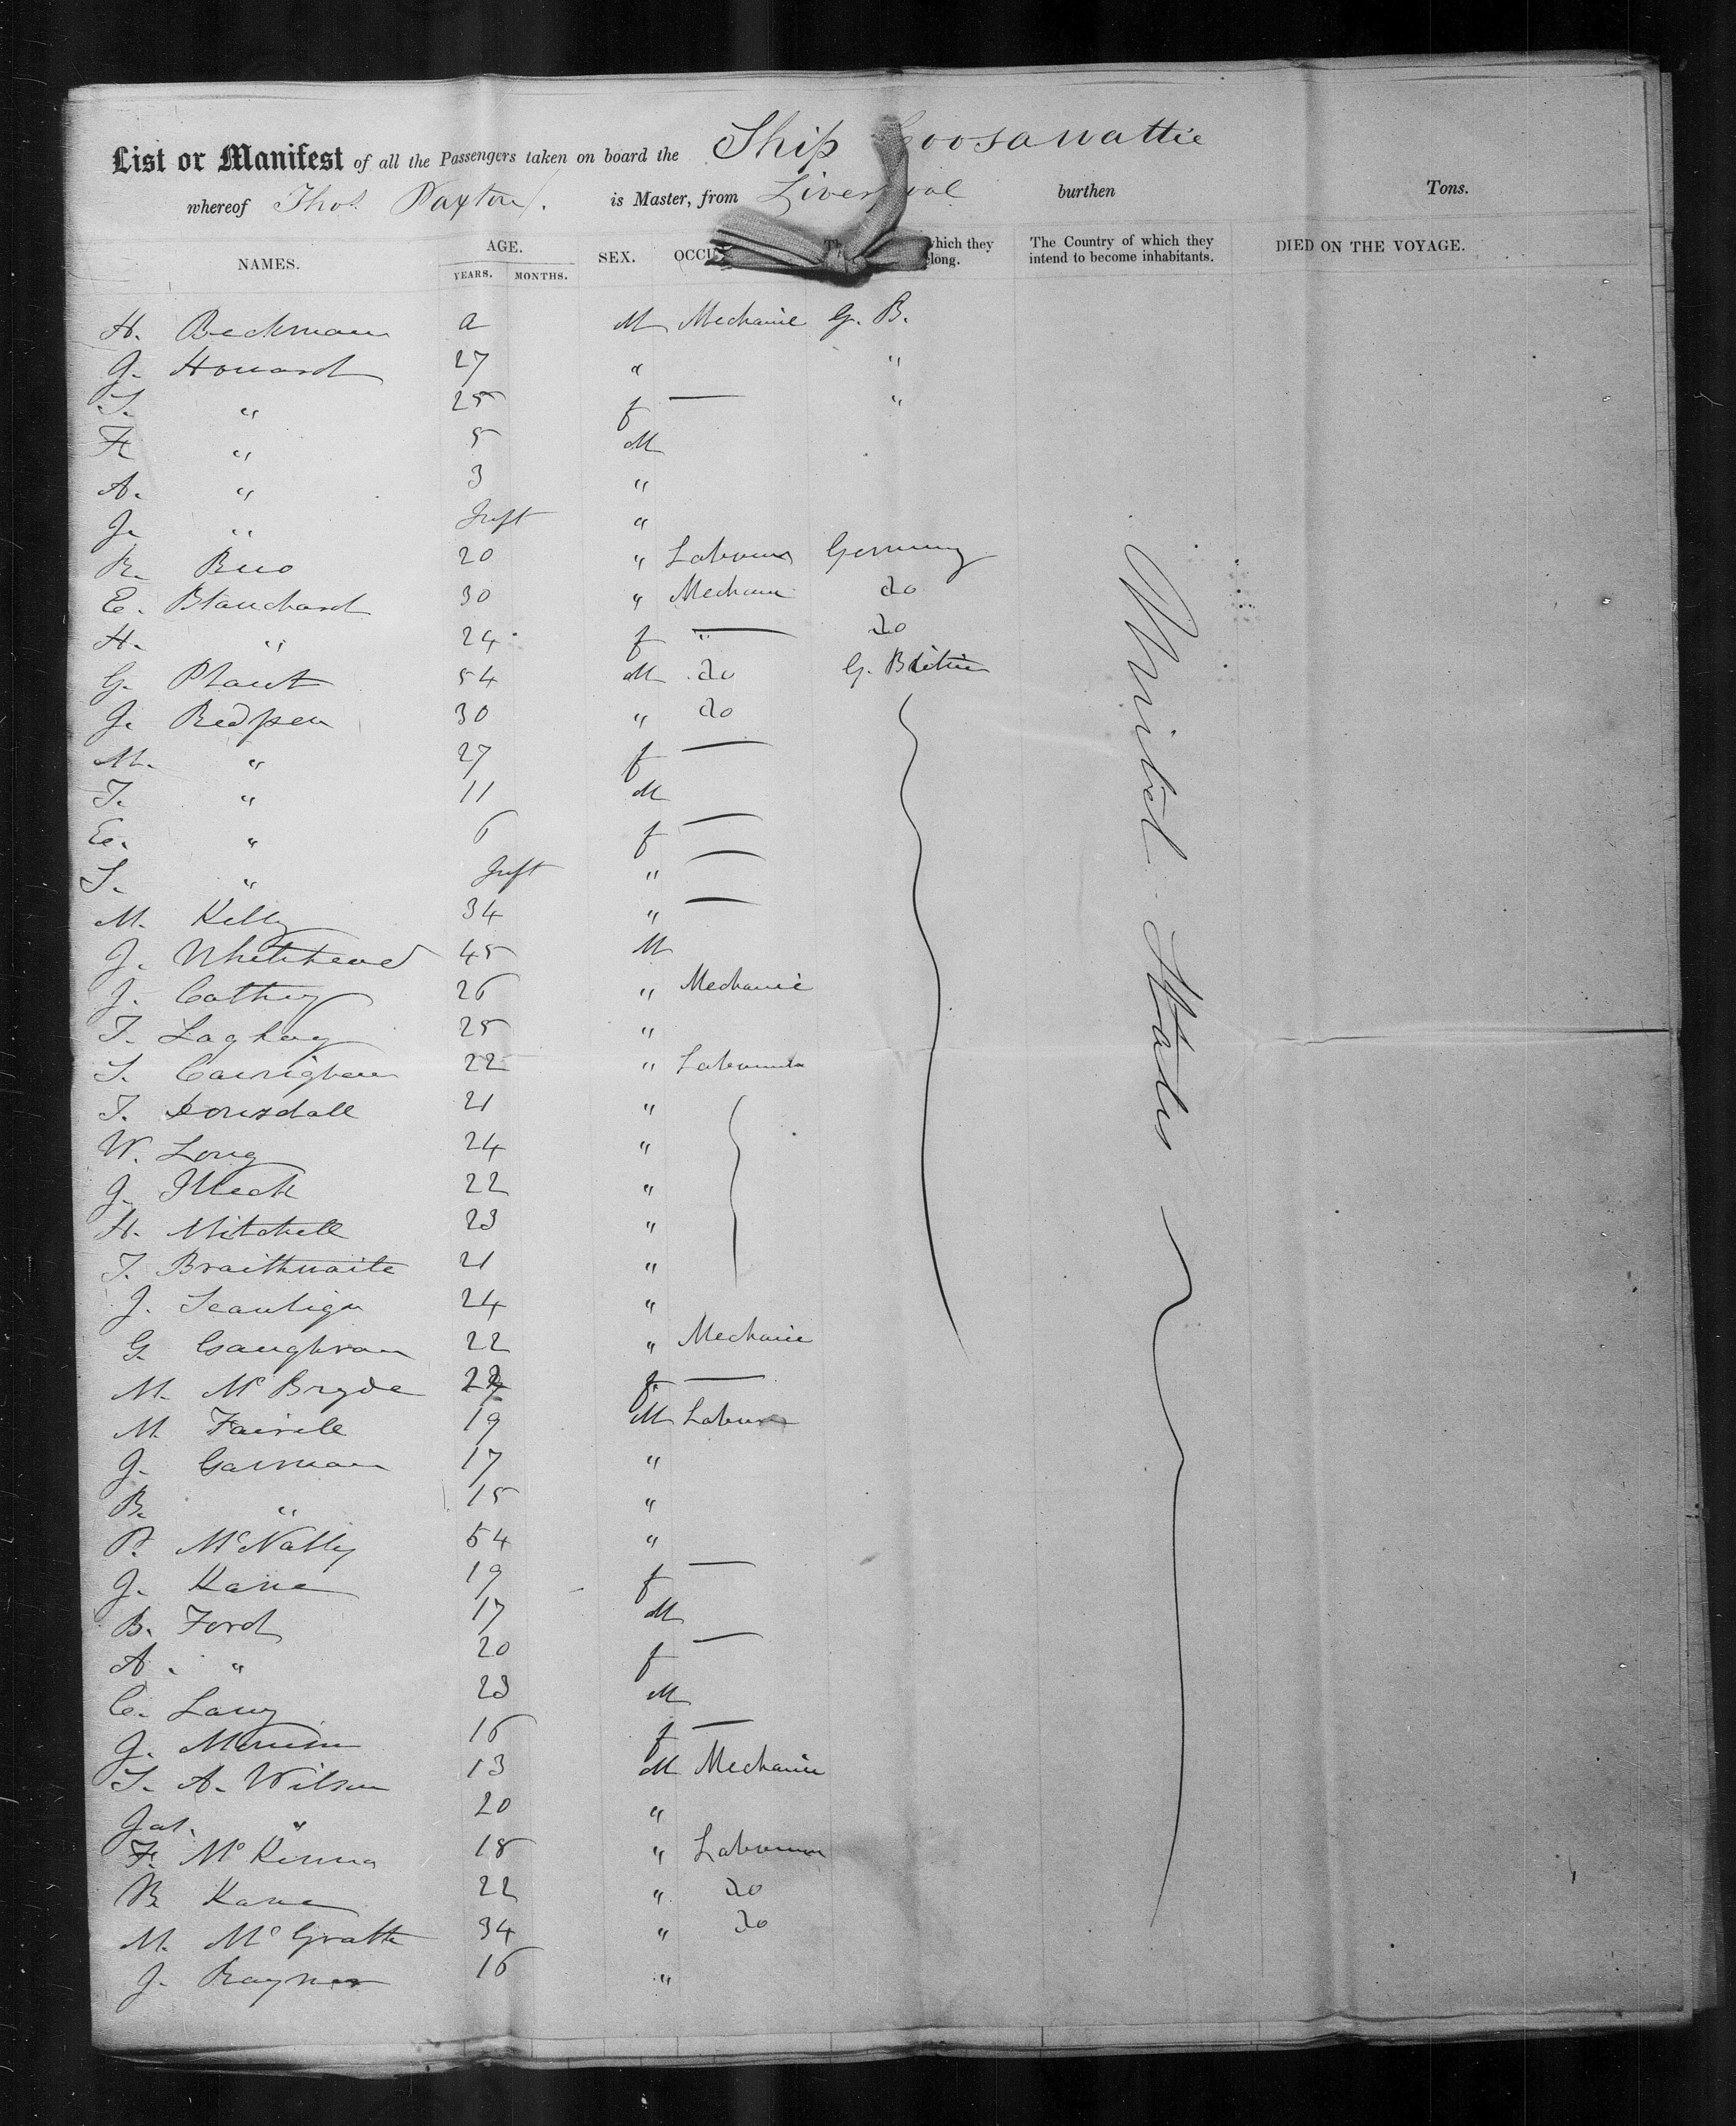 List or Manifest of all the Passengers taken on board the Ship Coosawattie
whereof Thos. Paxton. is Master, from Liverpool burthen Tons.
NAMES. AGE. YEARS. MONTHS. SEX. OCCU which they elong. The Country of which they intend to become inhabitants. DIED ON THE VOYAGE.
H. Beckman a M Mechanic G. B.
J. Howard 27 " "
S. " 25 f — "
F. " 5 M
A. " 3 "
J. " Inft "
R. 20 " Labourer Germany
E. Blanchard 30 " Mechanic do
H. " 24 f " — do
G. Plant 54 M do G. Britain
J. Redpen 30 " do
M. " 27 f —
T. " 11 M
E. " 6 f —
S. " Inft " —
M. Kelly 34 " —
J. Whitehead 45 M
J. Cathey 26 " Mechanic
T. Laghey 25 "
S. Carrighan 22 " Labourer
T. Lonsdall 21 "
W. Long 24 "
J. 22 "
H. Mitchell 23 "
T. Braithwaite 21 "
J. 24 "
G. Gaughran 22 " Mechanic
M. Mc Bryde f. —
M. 19 M Labourer
J. Garman 17 "
B. " 15 "
P. McNally 54 "
J. Kane 19 f —
B. Ford 17 M
A. " 20 f —
C. Lang 23 M
J. 16 f —
S. A. Wilson 13 M Mechanic
Jas. " 20 "
F. McKenna 18 " Labourer
B. Kane 22 " do
M. McGrath 34 " do
J. Raynor 16 "
United States